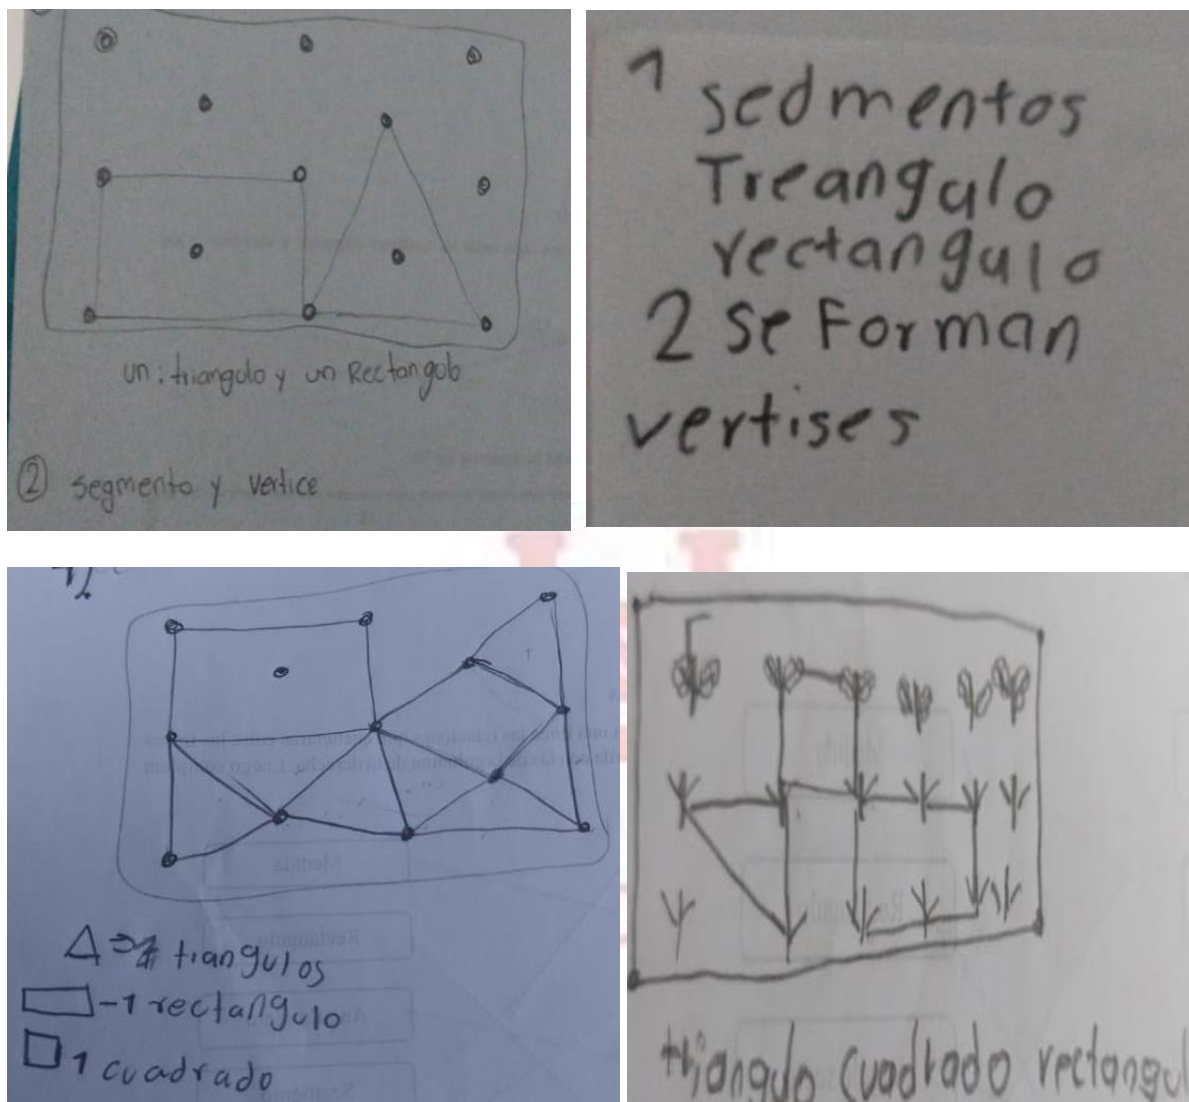 un: triangulo y un Rectangulo
② segmento y vertice
1 sedmentos
Treangulo
rectangulo
2 se Forman
vertises
tiangulos
-1 rectangulo
1 cuadrado
triangulo cuadrado rectangul